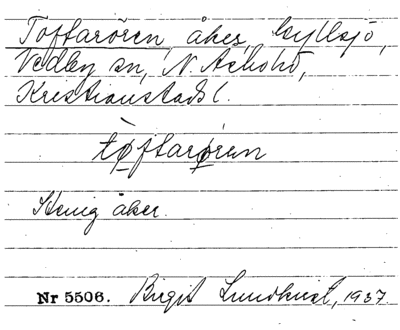 Toftarören, åker, Kyllsjö,
Vedby sn, N. Åsbohd,
Kristianstads l.
to̲ftarø̲ren
Stenig åker.
Nr 5506. Birgit Lundkvist, 1937